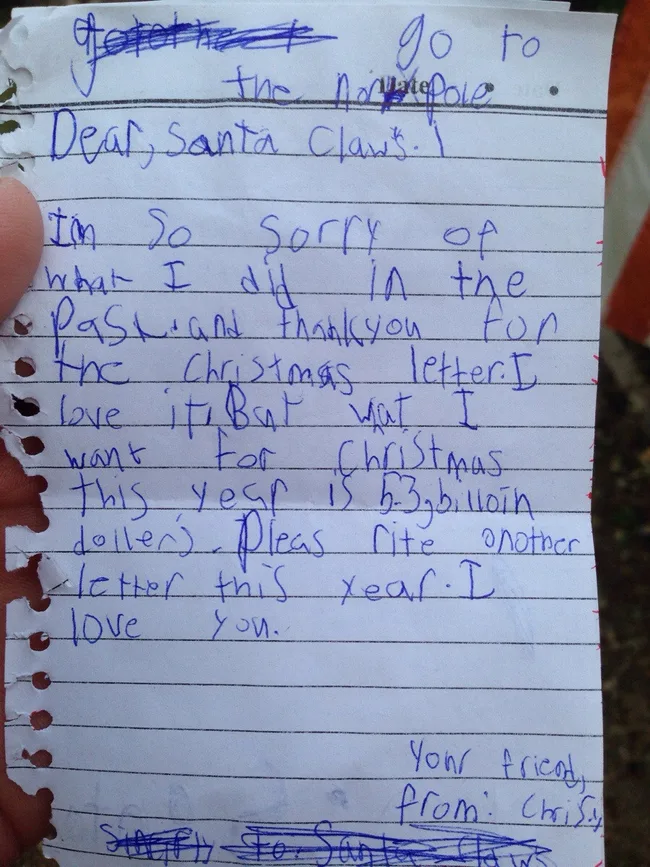 go to
the nor pole
Date
Dear, Santa Claws.
Im so sorry of
what I did in the
past. and thankyou for
the Christmas letter. I
love it, But wat I
want for Christmas
this year is 53 billoin
dollers. Pleas rite another
letter this year. I
love you.
Your friend,
from: Chrisy
to Santa Claws